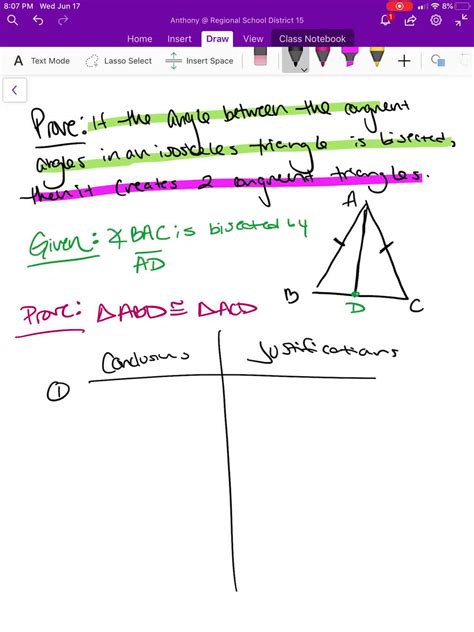 8:07 PM Wed Jun 17
8%
Anthony @ Regional School District 15
1
Home Insert Draw View Class Notebook
A Text Mode Lasso Select Insert Space
Prove: If the angle between the congruent
angles in an isosceles triangle is bisected,
then it creates 2 congruent triangles.
A
Given: ∡BAC is bisected by
AD
B
D
C
Prove: △ABD ≅ △ACD
Conclusions Justifications
①